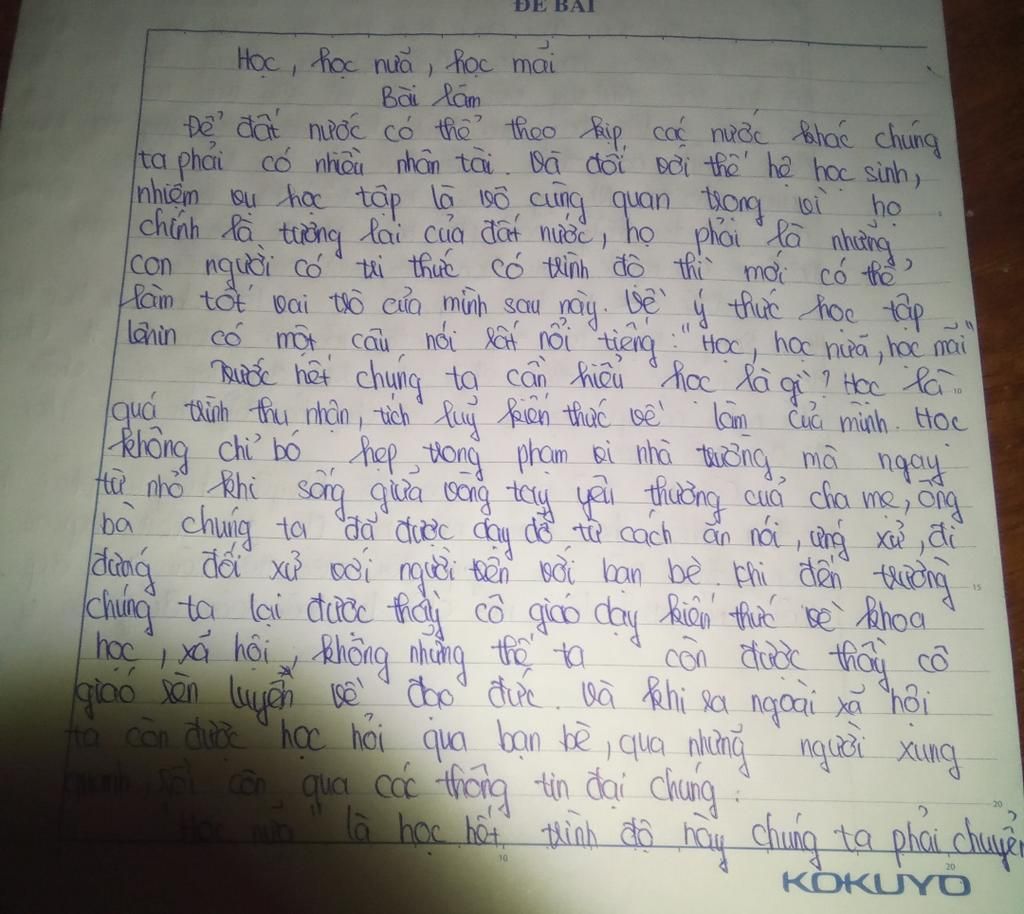 ĐỀ BÀI
Học, học nữa, học mãi
Bài làm
Để đất nước có thể theo kịp các nước khác chúng
ta phải có nhiều nhân tài. Và đối với thế hệ học sinh,
nhiệm vụ học tập là vô cùng quan trọng vì họ
chính là tương lai của đất nước, họ phải là những
con người có tri thức có trình độ thì mới có thể
làm tốt vai trò của mình sau này. Về ý thức học tập
Lênin có một câu nói rất nổi tiếng: "Học, học nữa, học mãi"
Trước hết chúng ta cần hiểu học là gì? Học là
quá trình thu nhận, tích luỹ kiến thức về làm của mình. Học
không chỉ bó hẹp trong phạm vi nhà trường mà ngay
từ nhỏ khi sống giữa vòng tay yêu thương của cha mẹ, ông
bà chúng ta đã được dạy dỗ từ cách ăn nói, ứng xử, đi
đứng đối xử với người trên với bạn bè. Khi đến trường
chúng ta lại được thầy cô giáo dạy kiến thức về khoa
học, xã hội, không những thế ta còn được thầy cô
giáo rèn luyện về đạo đức. Và khi ra ngoài xã hội
ta còn được học hỏi qua bạn bè, qua những người xung
quanh, rồi còn qua các thông tin đại chúng.
"Học nữa" là học hết trình độ này chúng ta phải chuyển
10
15
20
20
KOKUYO